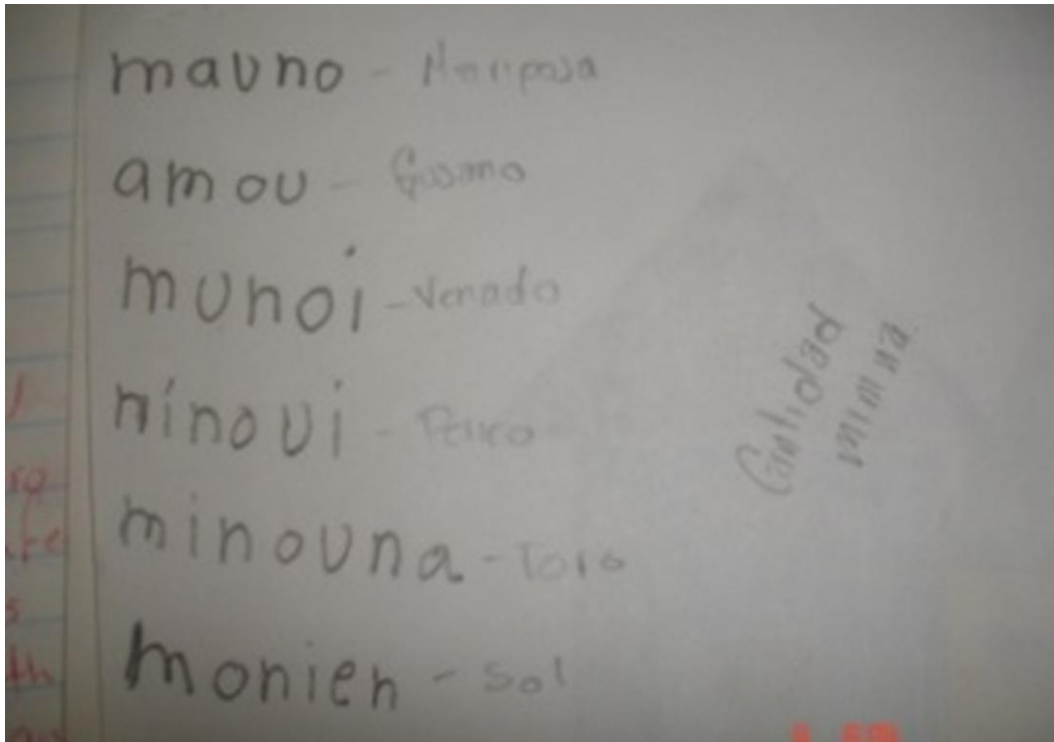 mauno - Mariposa
amou - Gusano
munoi - Venado
ninoui - Perico
minouna - Toro
monien - Sol
Cantidad
minima